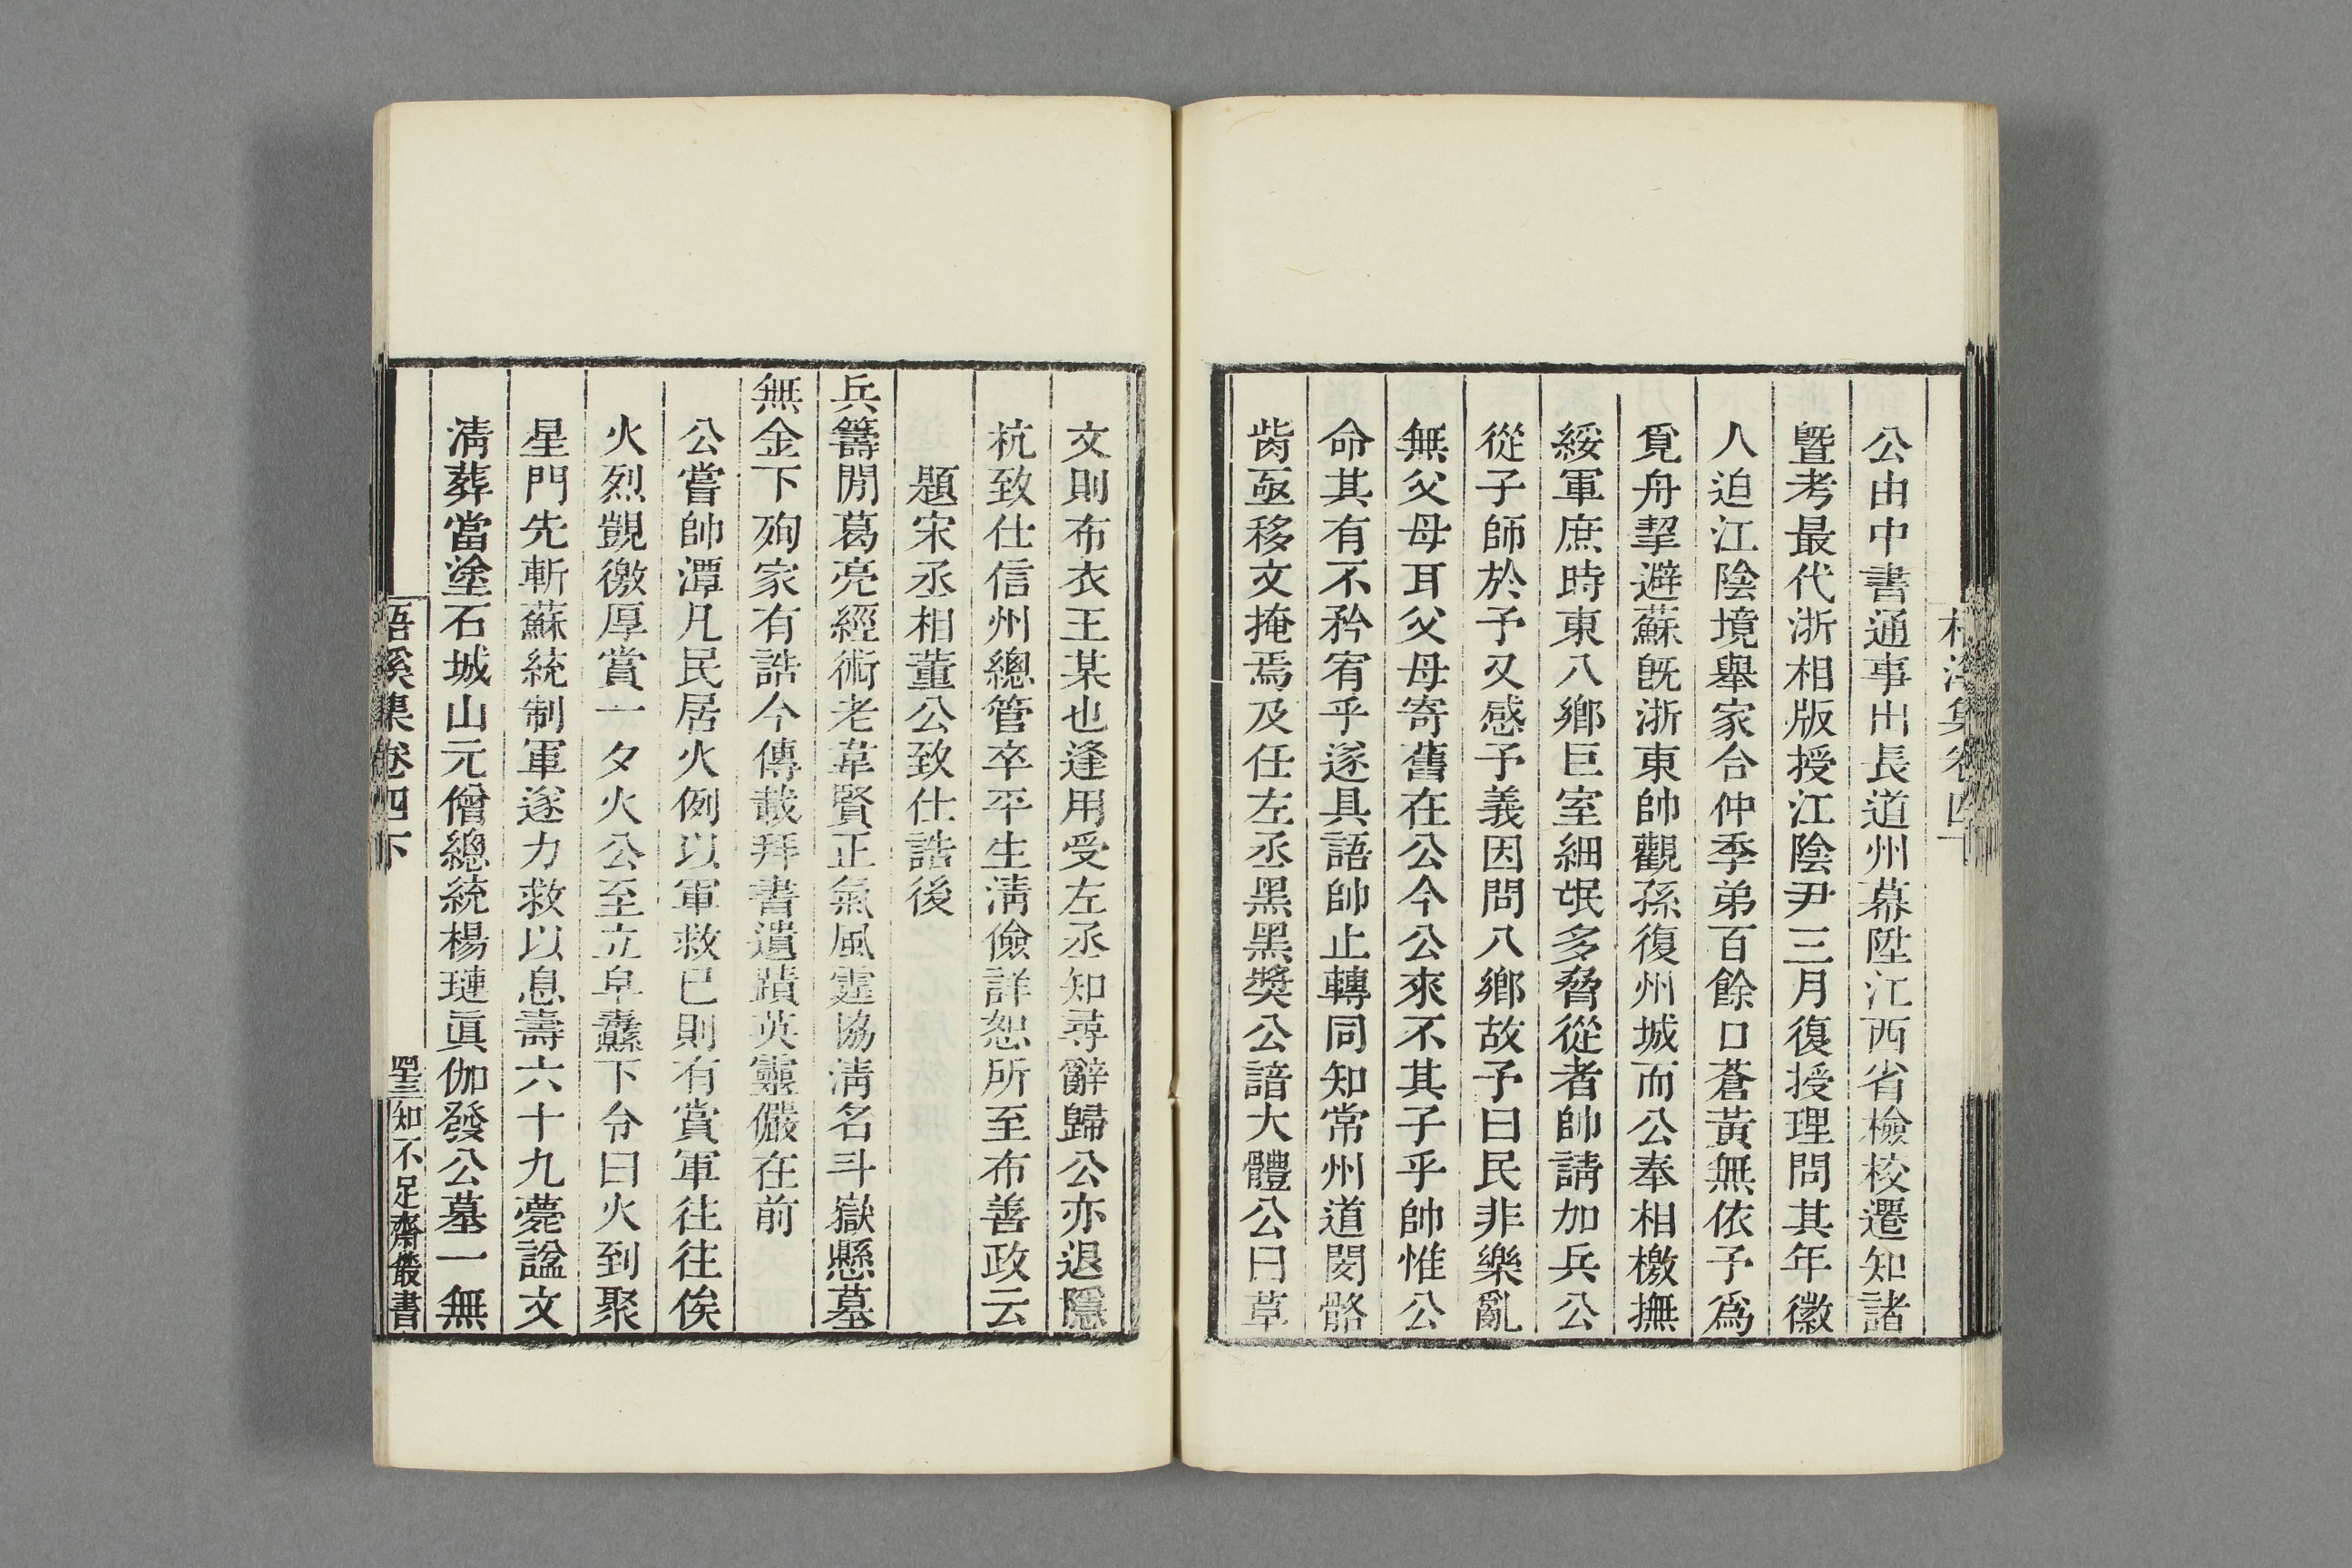 公由中書通事出長道州幕陞江西省檢校遷知諸
暨考最代浙相版授江陰尹三月復授理問其年徽
人迫江陰境舉家合仲季弟百餘口蒼黃無依予爲
覓舟挈避蘇旣浙東帥觀孫復州城而公奉相檄撫
綏軍庶時東八鄉巨室細氓多脅從者帥請加兵公
從子師於予又感予義因問八鄉故予曰民非樂亂
無父母耳父母寄舊在公今公來不其子乎帥惟公
命其有不矜宥乎遂具語帥止轉同知常州道閿骼
胔亟移文掩焉及任左丞黑黑奬公諳大體公曰草
文則布衣王某也逢用受左丞知尋辭歸公亦退隱
杭致仕信州總管卒平生淸儉詳恕所至布善政云
題宋丞相董公致仕誥後
兵籌閒葛亮經術老韋賢正氣風霆協淸名斗嶽懸墓
無金下殉家有誥今傳載拜書遺蹟英靈儼在前
公嘗帥潭凡民居火例以軍救已則有賞軍往往俟
火烈覬徼厚賞一夕火公至立皁纛下令曰火到聚
星門先斬蘇統制軍遂力救以息壽六十九薨諡文
淸葬當塗石城山元僧總統楊璉眞伽發公墓一無
梧溪集卷四下
知不足齋叢書